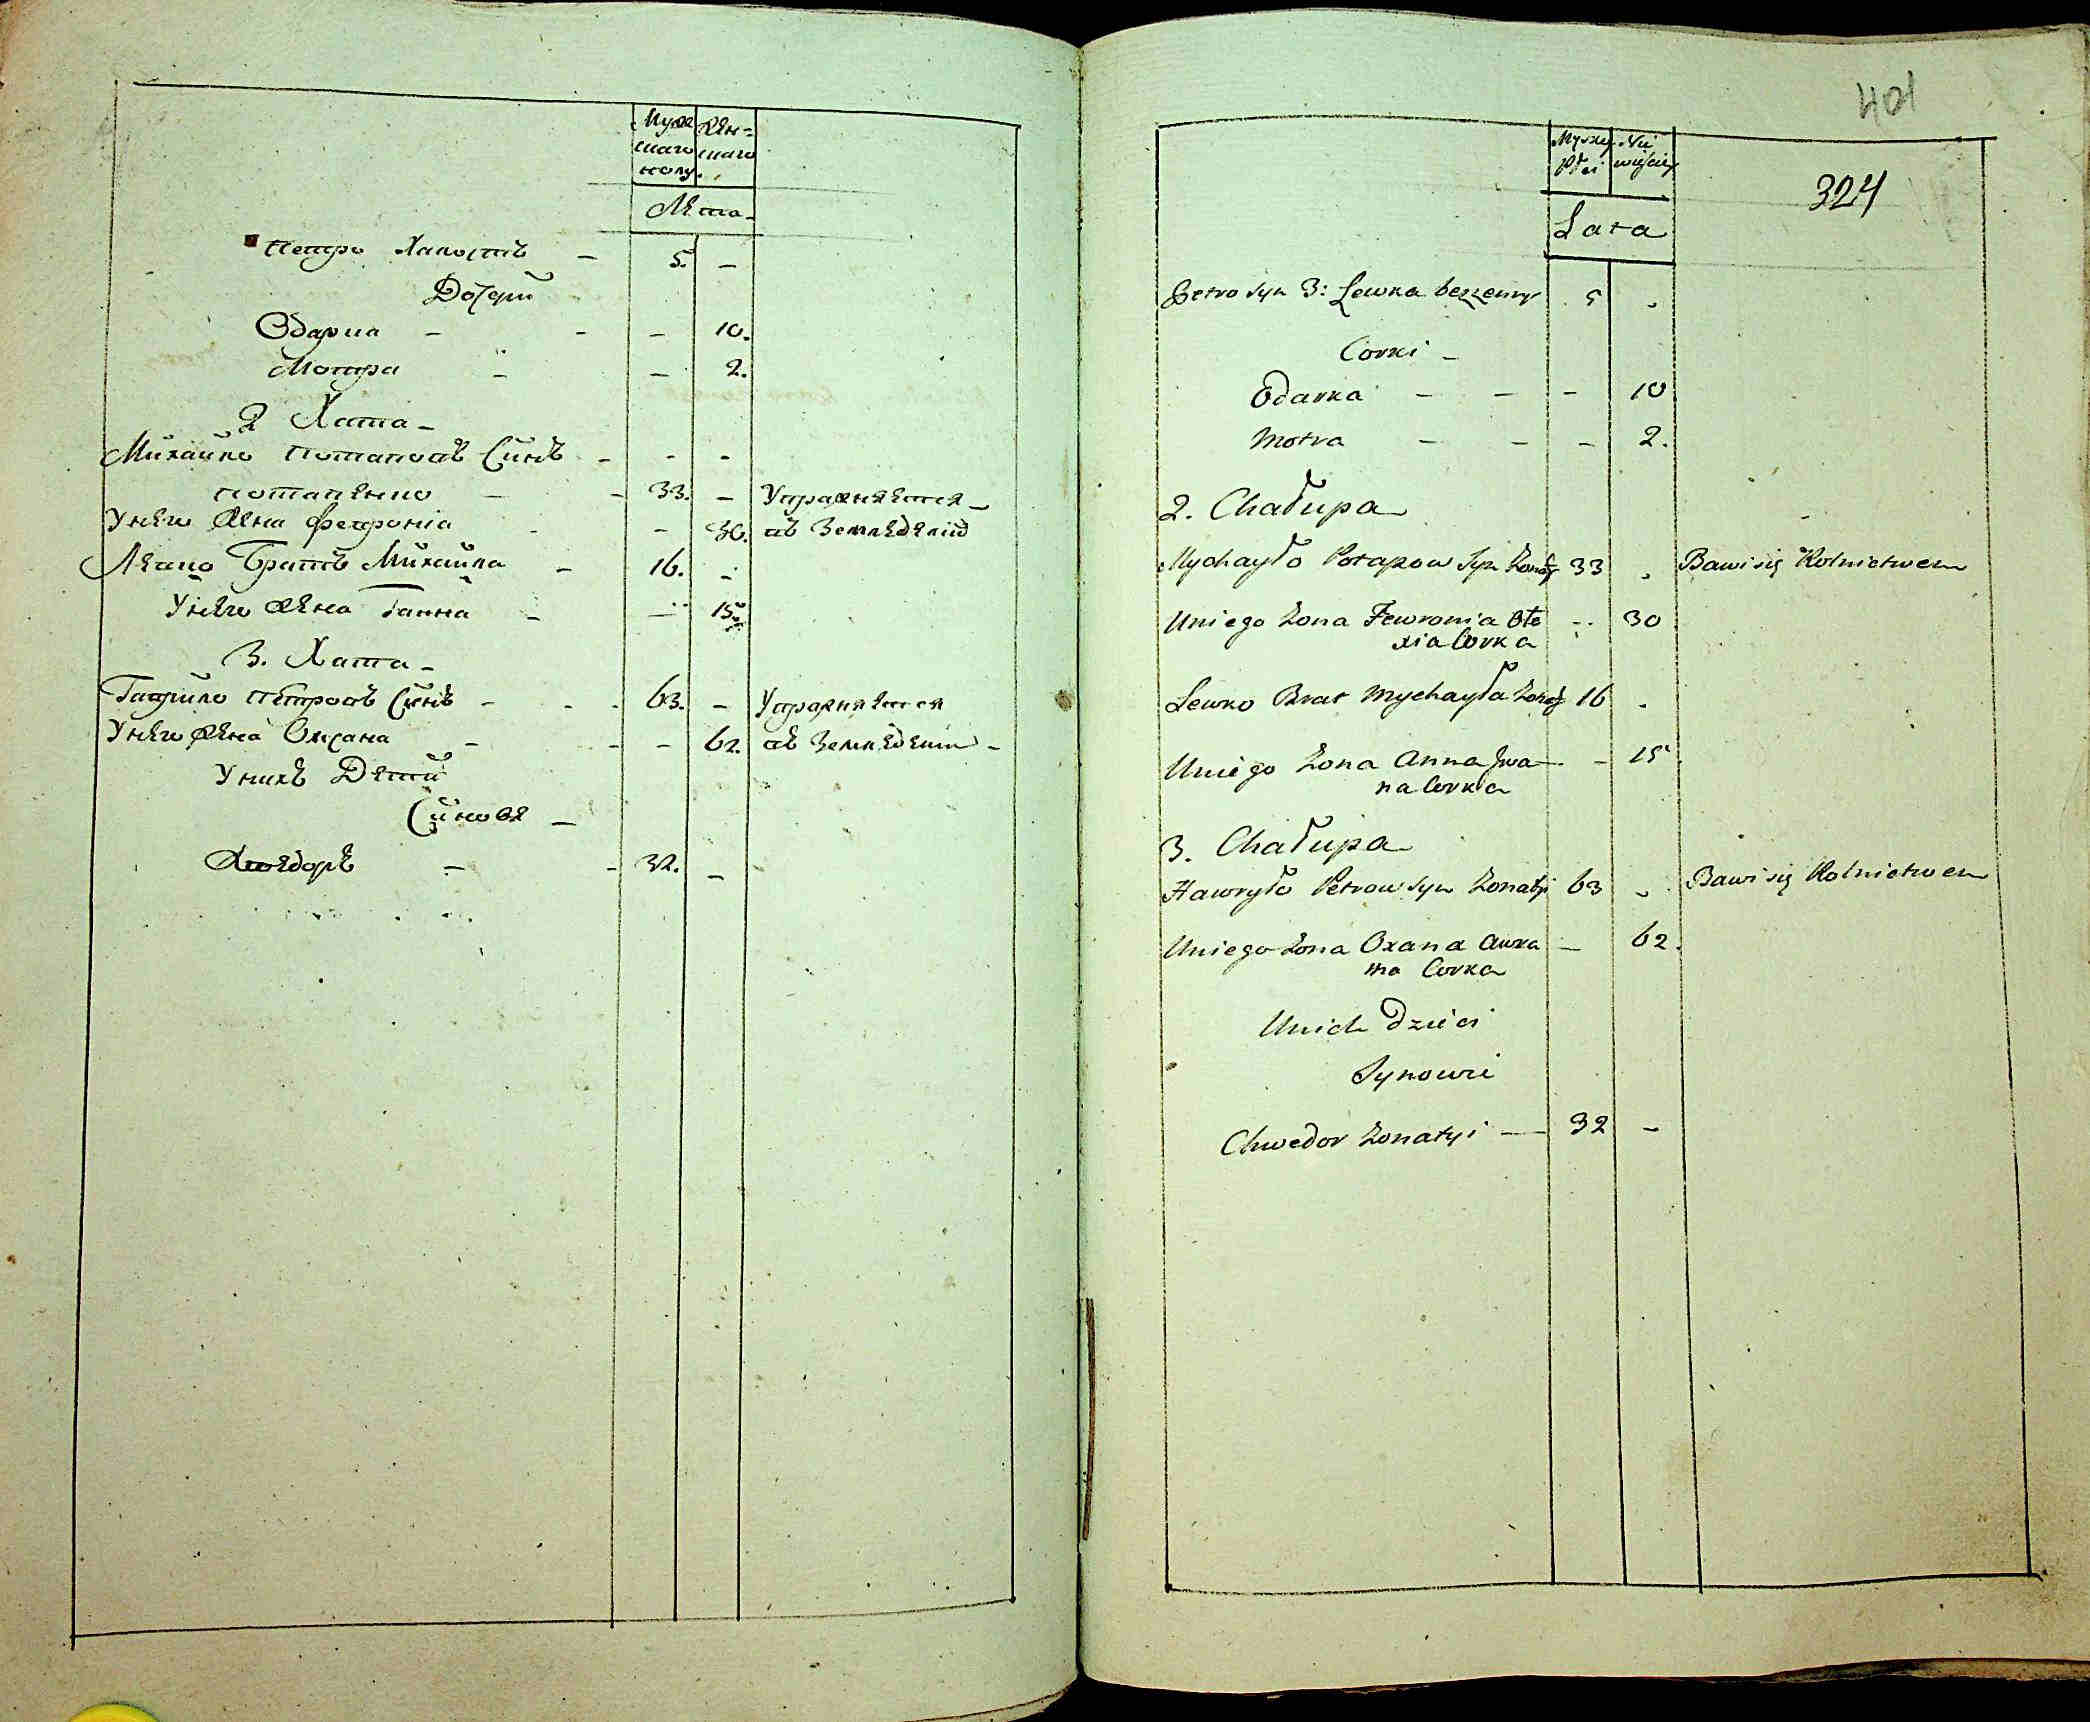 Муж Жен=
скаго скаго
полу.
Лета.
Петро Холостъ — 5. —
Дочери
Одарка — — — 10.
Мотра — — 2.
2 Хата —
Михайло Потаповъ Синъ — - -
Потапенко — — 33. — Упражняется —
У него жена Феврония - — 30. въ Земледелїи
Левко Братъ Михайла — 16. —
У него жена Ганна — — 15.
3. Хата —
Гаврило Петровъ Синъ — - - 63. — Упражняется
У него жена Оксана — - — 62. въ Земледелии —
У нихъ Дети
Синовя —
Хведоръ — - 32. —
401
324
Męzkiey Nie
Płci wieściey
Lata
Petro syn 3: Lewka bezzenny 5 -
Corki —
Odarka — — — 10
Motra — — — 2.
2. Chałupa
Mychayło Potapow Syn Zonaty 33 - Bawi się Rolnictwem
Uniego Zona Fewronia Ole — 30
xia Corka
Lewko Brat Mychayła Zonaty 16 -
Uniego Zona Anna Iwa — — 15
na Corka
3. Chałupa
Hawryło Petrow syn Zonatyi 63 - Bawi się Rolnictwem
Uniego Zona Oxana — 62.
ma Corka
Unich Dzieci
Synowie
Chwedor Zonatyi — 32 —